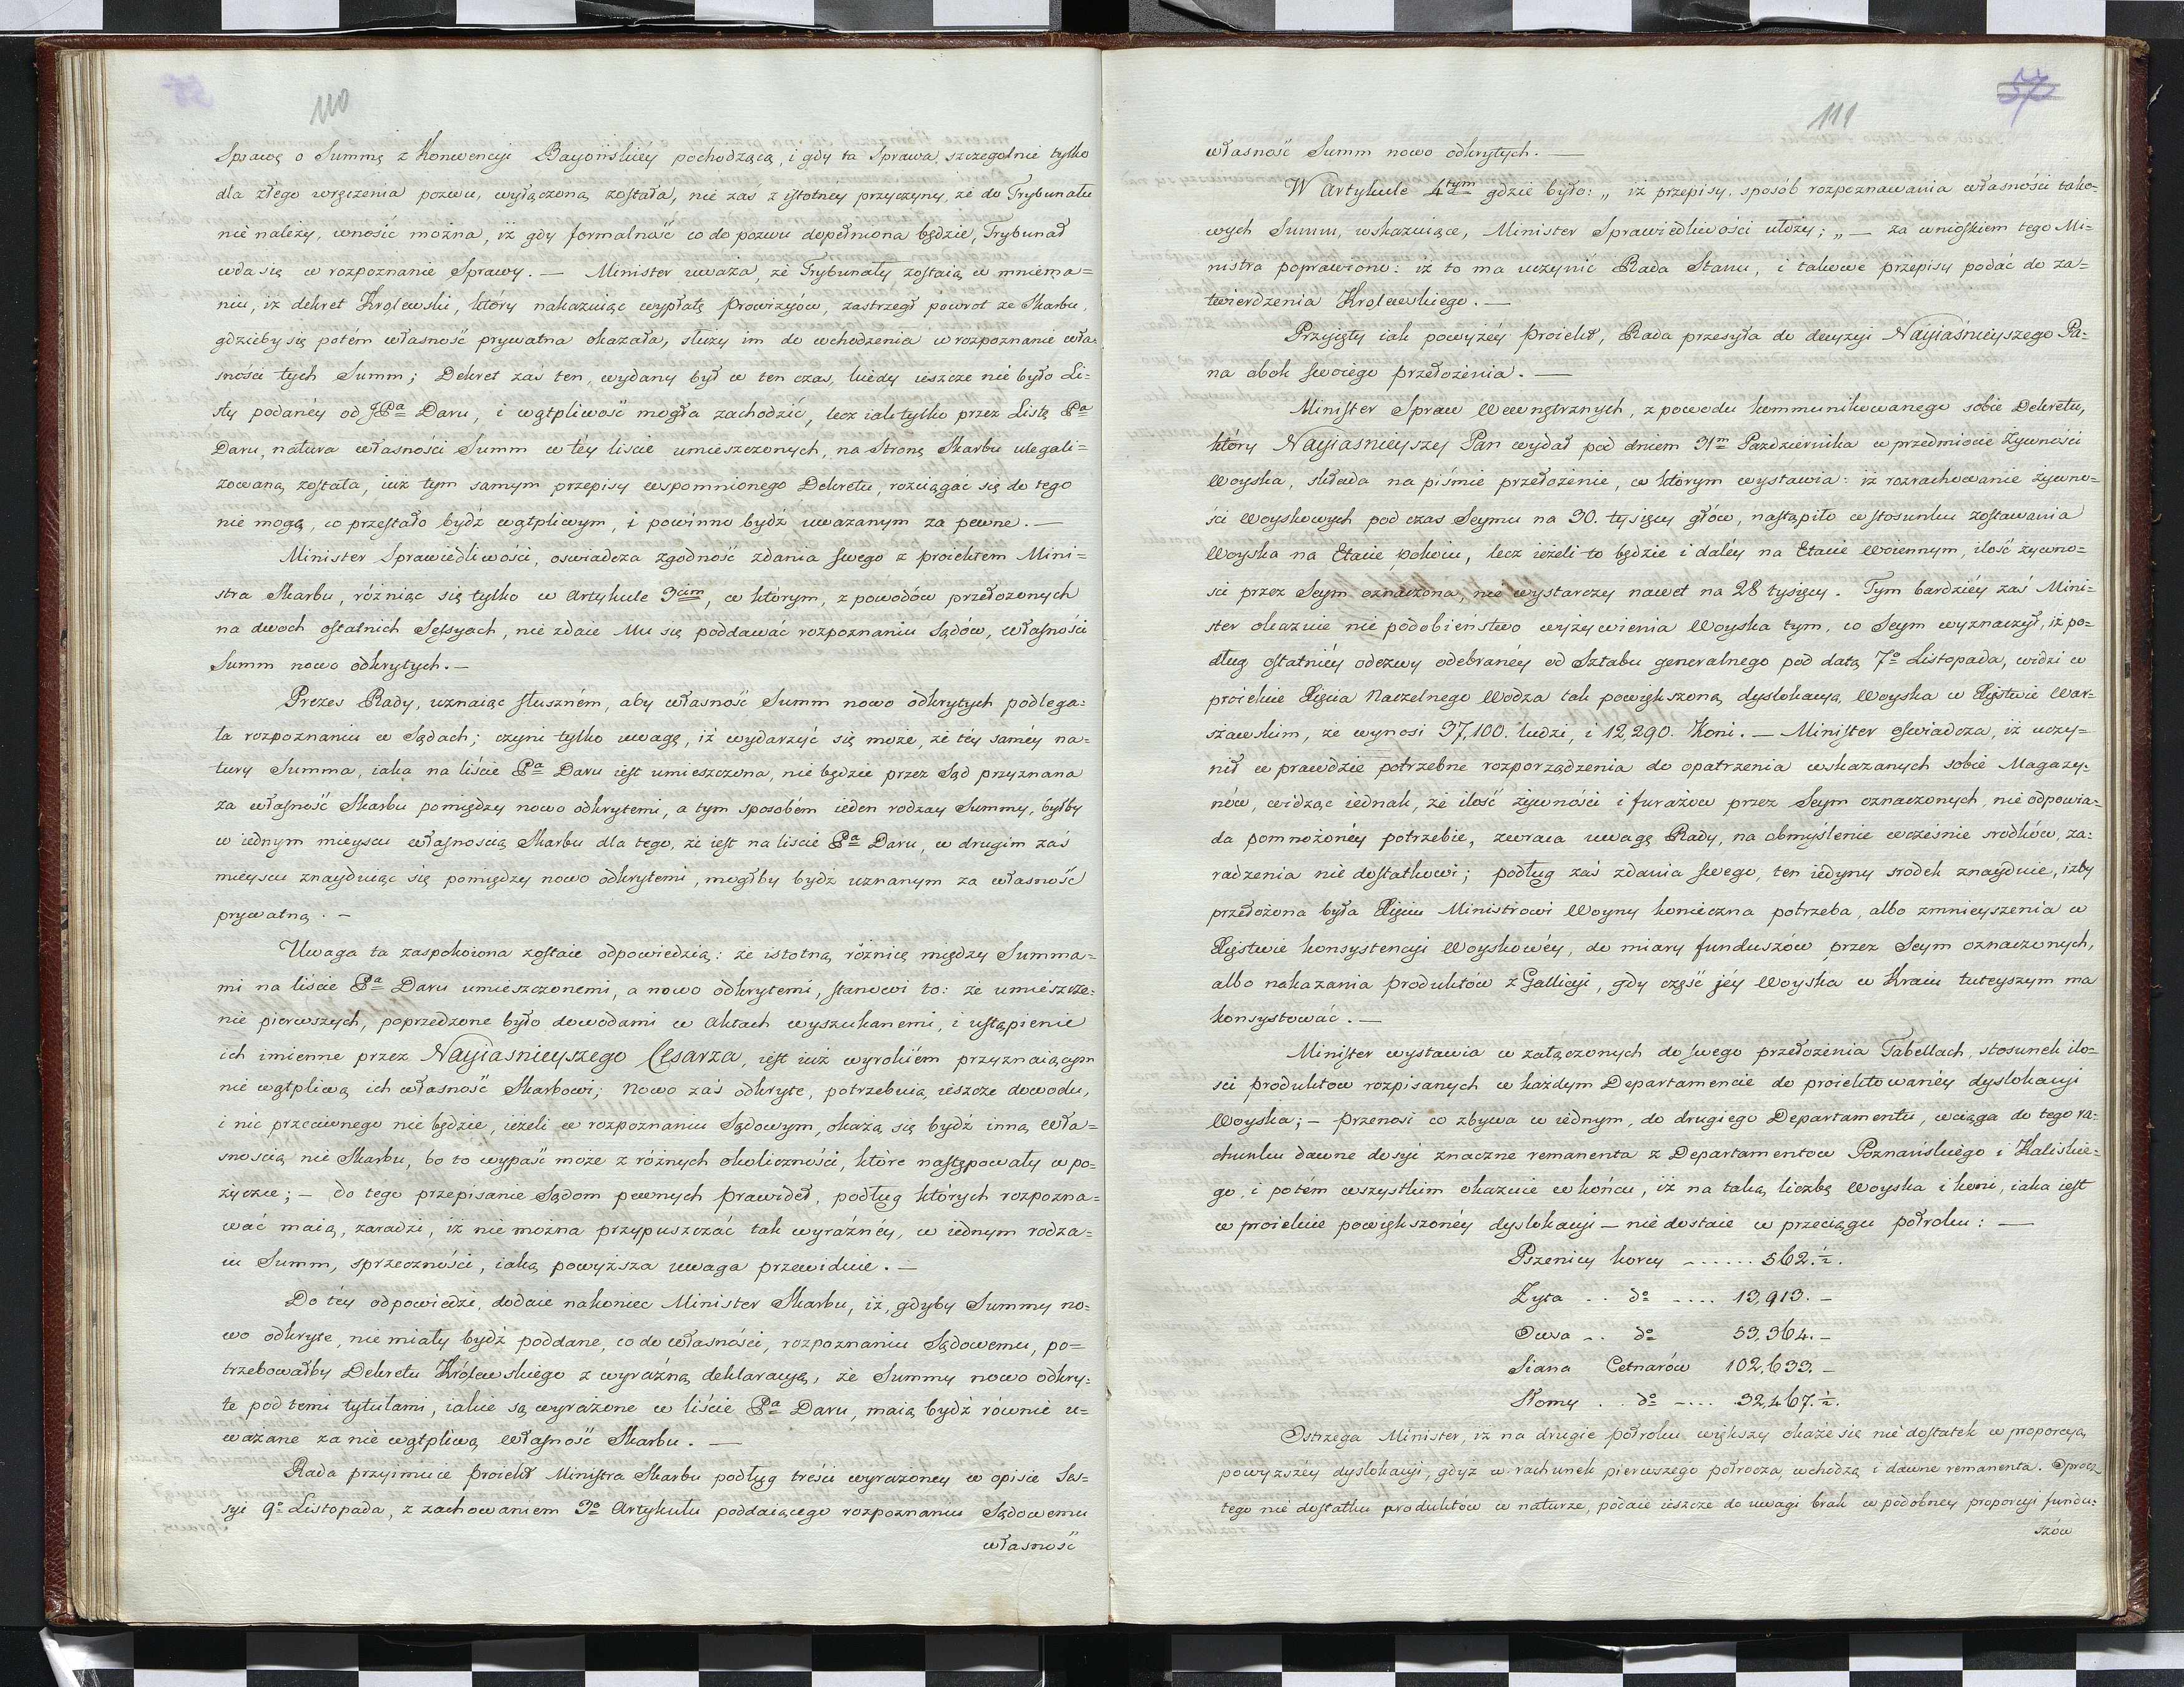 110
Sprawę o Summę z Konwencyi Bayońskiéy pochodzącą, i gdy ta Sprawa, szczegolnie tylko
dla złego wręczenia pozwu, wyłączoną została, nie zaś z istotnéy przyczyny, że do Trybunału
nie należy, wnosić można, iż gdy formalność co do pozwu dopełniona będzie, Trybunał
wda się w rozpoznanie Sprawy. — Minister uważa, że Trybunały zostaią w mniema=
niu, iż dekret Krolewski, który nakazuiąc wypłatę Prowizyów, zastrzegł powrot ze Skarbu,
gdzieby się potém własność prywatna okazała, służy im do wchodzenia w rozpoznanie wła=
sności tych Summ; Dekret zaś ten, wydany był w ten czas, kiedy ieszcze nie było Li=
sty podanéy od JPa Daru, i wątpliwość mogła zachodzić, lecz iak tylko przez Listę Pa
Daru, natura własności Summ w téy liscie umieszczonych, na Stronę Skarbu ulegali=
zowaną została, iuż tym samym przepisy wspomnionego Dekretu, rozciągać się do tego
nie mogą, co przestało bydź wątpliwym, i powinno bydź uważanym za pewne. —
Minister Sprawiedliwości, oswiadcza zgodność zdania swego z proiektem Mini=
stra Skarbu, różniąc się tylko w Artykule 3cim, w którym, z powodów przełozonych
na dwoch ostatnich Sessyach, nie zdaie Mu się poddawać rozpoznaniu Sądów, własności
Summ nowo odkrytych. —
Prezes Rady, uznaiąc słuszném, aby własność Summ nowo odkrytych podlega=
ła rozpoznaniu w Sądach; czyni tylko uwagę, iż wydarzyć się może, że téy saméy na=
tury Summa, iaka na liście Pa Daru iest umieszczona, nie będzie przez Sąd przyznana
za własność Skarbu pomiędzy nowo odkrytemi, a tym sposobém ieden rodzay Summy, byłby
w iednym mieyscu własnoscią Skarbu dla tego, że iest na liscie Pa Daru, w drugim zaś
mieyscu znayduiąc się pomiędzy nowo odkrytemi, mogłby bydź uznanym za własność
prywatną. —
Uwaga ta zaspokoiona zostaie odpowiedzią: że istotną różnicę między Summa=
mi na liście Pa Daru umieszczonemi, a nowo odkrytemi, stanowi to: że umieszcze=
nie pierwszych, poprzedzone było dowodami w Aktach wyszukanemi, i ustąpienie
ich imienne przez Nayiasnieyszego Cesarza, iest iuż wyrokiém przyznaiącym
nie wątpliwą ich własność Skarbowi; Nowo zaś odkryte, potrzebuią ieszcze dowodu,
i nic przeciwnego nie będzie, ieżeli w rozpoznaniu Sądowym, okażą się bydź inną wła=
snoscią nie Skarbu, bo to wypaść może z różnych okoliczności, które następowały w po=
życzce; — do tego przepisanie Sądom pewnych Prawideł, podług których rozpozna=
wać maią, zaradzi, iż nie można przypuszczać tak wyraźnéy, w iednym rodza=
iu Summ, sprzeczności, iaką powyższa uwaga przewiduie. —
Do téy odpowiedzi, dodaie nakoniec Minister Skarbu, iż, gdyby Summy no=
wo odkryte, nie miały bydź poddane, co do własności, rozpoznaniu Sądowemu, po=
trzebowałby Dekretu Królewskiego z wyraźną deklaracyą, że Summy nowo odkry=
te pod temi tytułami, iakie są wyrażone w liście Pa Daru, maią bydź równie u=
ważane za nie wątpliwą Własność Skarbu. —
Rada przyimuie proiekt Ministra Skarbu podług treści wyrażoney w opisie Ses=
syi 9o Listopada, z zachowaniem 3o Artykułu poddaiącego rozpoznaniu Sądowemu
własność
57
111
własność Summ nowo odkrytych. —
W Artykule 4tym gdzie było: „ iż przepisy, sposób rozpoznawania własności tako=
wych Summ, wskazuiące, Minister Sprawiedliwości ułoży; „ — za wnioskiem tego Mi=
nistra poprawiono: iż to ma uczynić Rada Stanu, i takowe przepisy podać do za=
twierdzenia Krolewskiego. —
Przyięty iak powyżéy Proiekt, Rada przesyła do decyzyi Nayiaśnieyszego Pa=
na obok swoiego przełożenia. —
Minister Spraw Wewnętrznych, z powodu kommunikowanego sobie Dekretu,
który Nayiasnieyszy Pan wydał pod dniem 31m Pazdziernika w przedmiocie Żywności
Woyska, składa na piśmie przełożenie, w którym wystawia: iż rozrachowanie żywno=
ści Woyskowych pod czas Seymu na 30. tysięcy głów, nastąpiło w stosunku zostawania
Woyska na Etacie pokoiu, lecz ieżeli to będzie i daléy na Etacie Woiennym, ilość żywno=
sci przez Seym oznaczona, nie wystarczy nawet na 28 tysięcy. Tym bardziéy zaś Mini=
ster okazuie nie podobieństwo wyżywienia Woyska tym, co Seym wyznaczył, iż po=
dług ostatniéy odezwy odebranéy od Sztabu generalnego pod datą 7o Listopada, widzi w
proiekcie Xięcia Naczelnego Wodza tak powiększoną dyslokacyą Woyska w Xięstwie War=
szawskim, że wynosi 37,100. ludzi, i 12,290. Koni. — Minister oswiadcza, iż uczy=
nił w prawdzie potrzebne rozporządzenia do opatrzenia wskazanych sobie Magazy=
nów, widząc iednak, że ilość żywności i furażow przez Seym oznaczonych, nie odpowia=
da pomnożonéy potrzebie, zwraca uwagę Rady, na obmyślenie wcześnie srodków, za=
radzenia nie dostatkowi; podług zaś zdania swego, ten iedyny srodek znayduie, iżby
przełożona była Xięciu Ministrowi Woyny konieczna potrzeba, albo zmnieyszenia w
Xięstwie konsystencyi Woyskowéy, do miary funduszów przez Seym oznaczonych,
albo nakazania Produktów z Gallicyi, gdy część jéy Woyska w Kraiu tuteyszym ma
konsystować. —
Minister wystawia w załączonych do swego przełożenia Tabellach, stosunek ilo=
sci Produktow rozpisanych w każdym Departamencie do proiektowanéy dyslokacyi
Woyska; — przenosi co zbywa w iednym, do drugiego Departamentu, wciąga do tego ra=
chunku dawne dosyć znaczne remanenta z Departamentow Poznańskiego i Kaliskie=
go, i potém wszystkim okazuie w końcu, iż na taką liczbę Woyska i koni, iaka iest
w proiekcie powiększonéy dyslokacyi — nie dostaie w przeciągu połroku: —
Pszenicy korcy ...... 562.½.
Żyta .. do .... 13,913. —
Owsa .. do 53,364. —
Siana Cetnarów 102,633. —
Słomy .. do .... 32,467.½.
Ostrzega Minister, iż na drugie połroku większy okaże się nie dostatek w proporcyą
powyższéy dyslokacyi, gdyż w rachunek pierwszego połrocza wchodzą i dawne remanenta. Oprocz
tego nie dostatku produktów w naturze, podaie ieszcze do uwagi brak w podobney proporcyi fundu=
szów